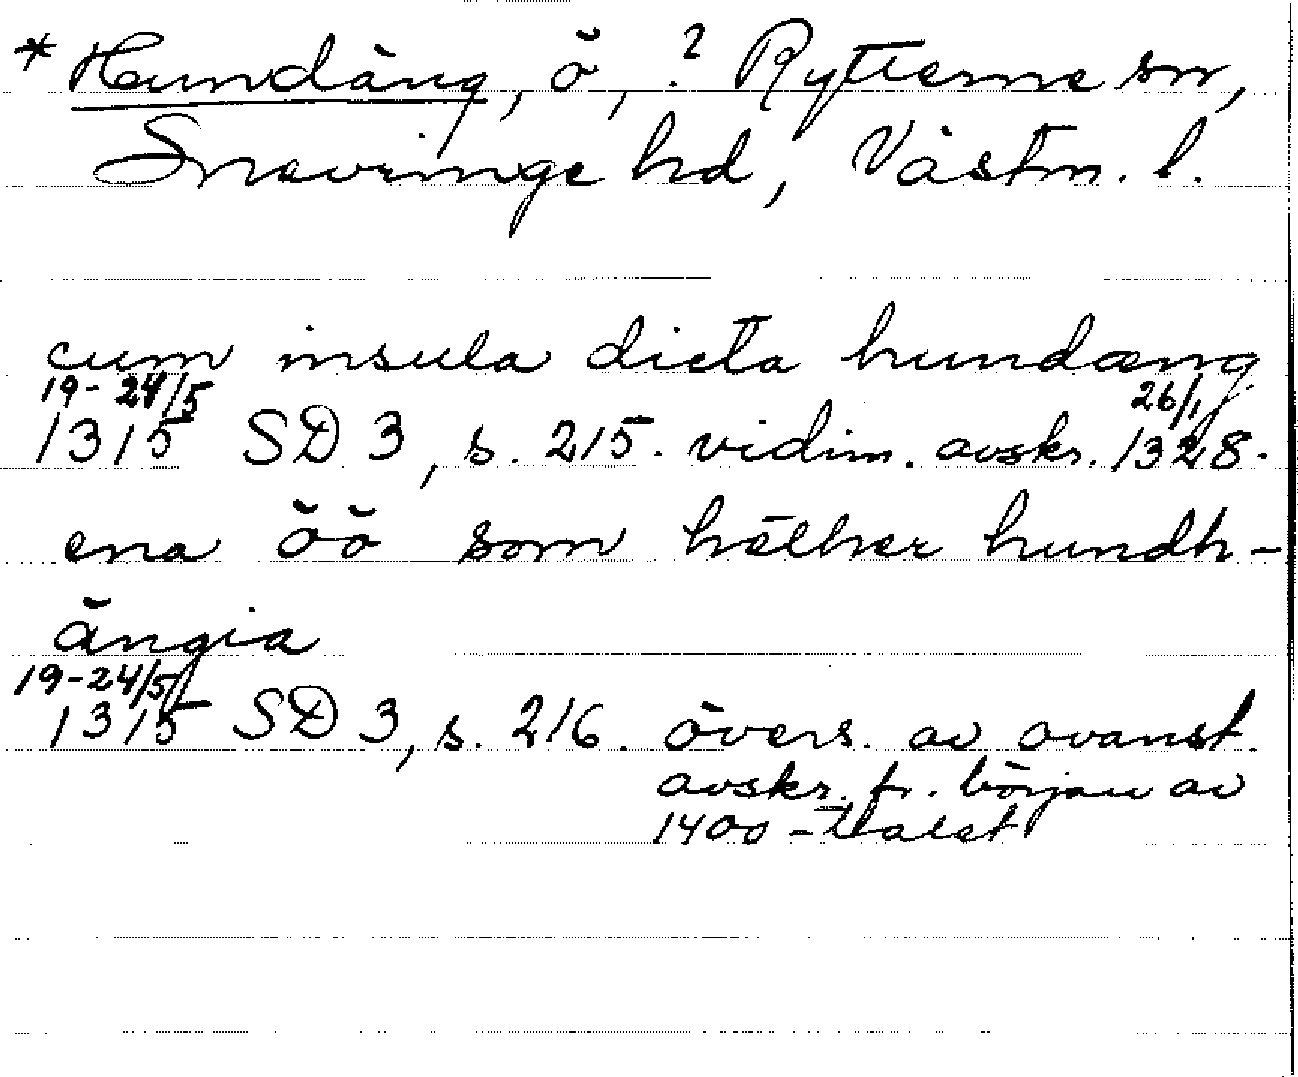 * Hundäng, ö, ? Rytterne sn,
Snevringe hd, Västm. l.
cum insula dicta hundæng
19-24/5 26/1
1315 SD 3, s. 215. vidim. avskr. 1328.
ena öö som hēther hundh-
ängia
19-24/5
1315 SD 3, s. 216. övers. av ovanst.
avskr. fr. början av
1400-talet